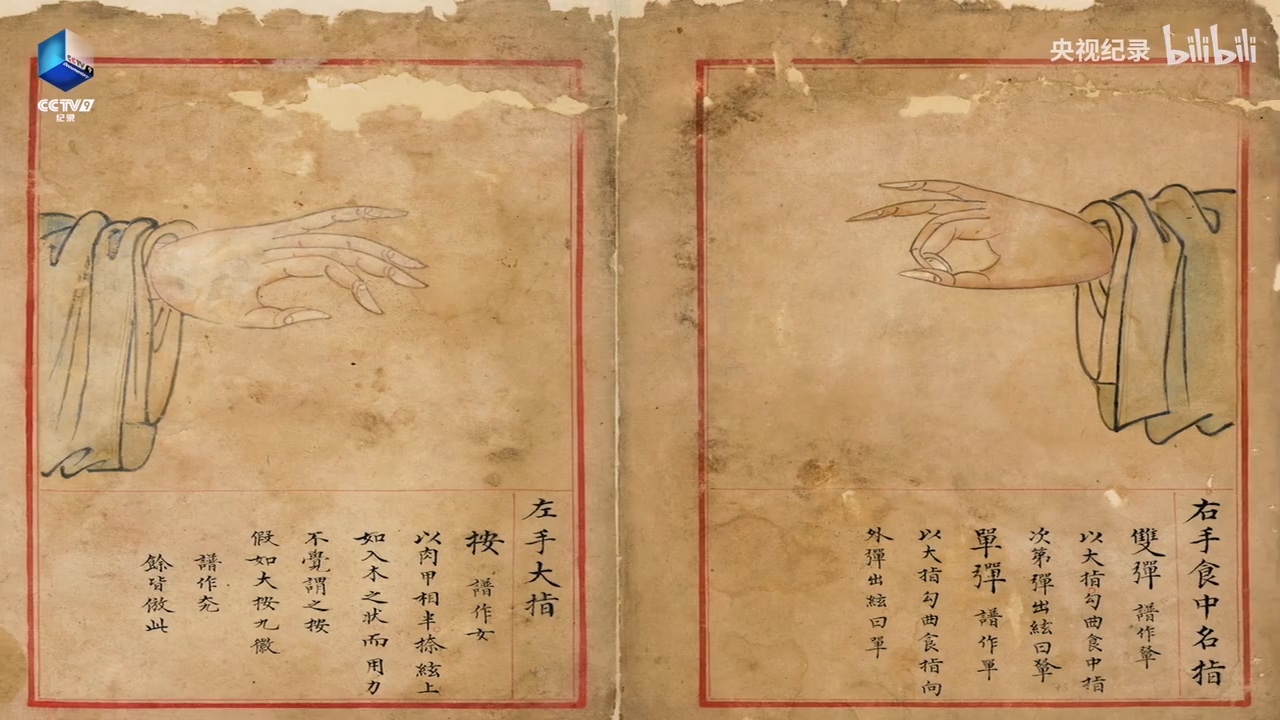 CCTV9
纪录
央视纪录 bilibili
右手食中名指
雙彈 譜作
以大指勾曲食中指
次第彈出絃曰
單彈 譜作
以大指勾曲食指向
外彈出絃曰單
左手大指
按 譜作女
以肉甲相半捺絃上
如入木之状而用力
不覺謂之按
假如大按九徽
譜作
餘皆倣此